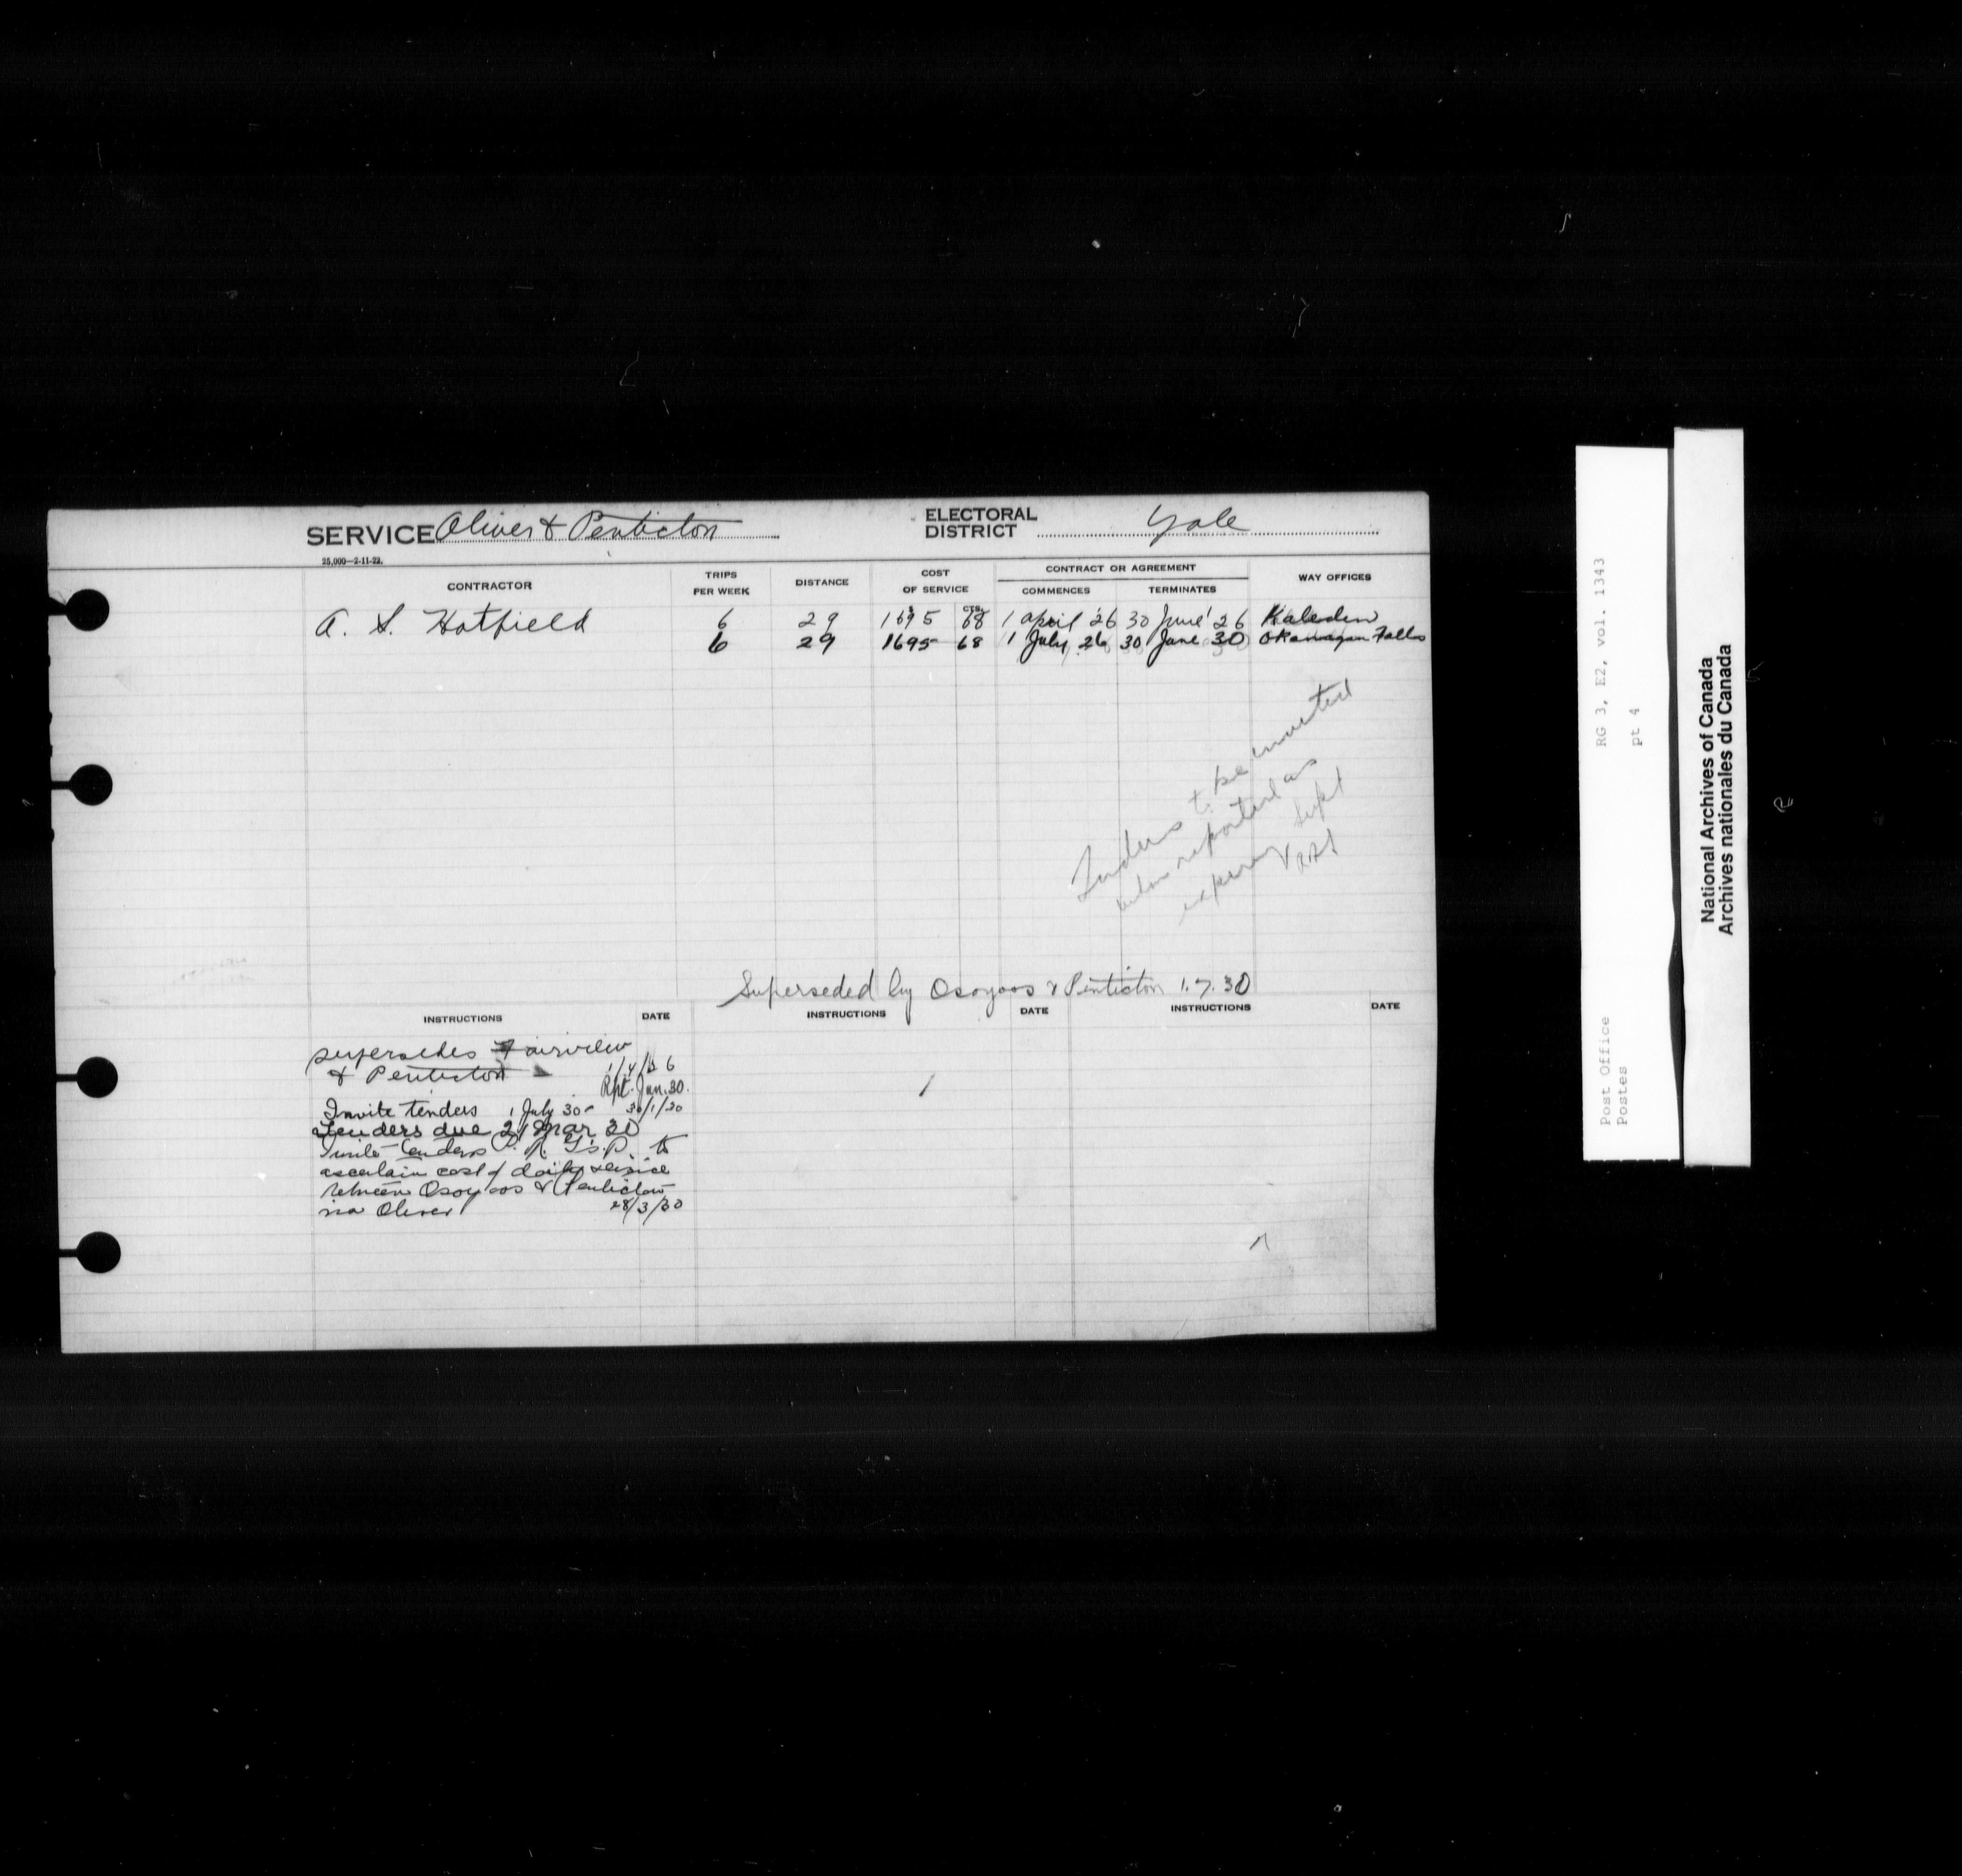 SERVICE Oliver & Penticton
ELECTORAL DISTRICT Yale
25,000—2-11-22.
CONTRACTOR TRIPS PER WEEK DISTANCE COST OF SERVICE CONTRACT OR AGREEMENT COMMENCES TERMINATES WAY OFFICES
$ CTS.
A. S. Hatfield 6 29 1695 68 1 April '26 30 June '26 Kaleden
6 29 1695 68 1 July 26 30 June 30 Okanagan Falls
Tenders to be invited
when reported as
expiring Supt
Superseded by Osoyoos & Penticton 1.7.30
INSTRUCTIONS DATE INSTRUCTIONS DATE INSTRUCTIONS DATE
supersedes Fairview
& Penticton 1/4/26
Rpt. Jan. 30.
Invite tenders 1 July 30 30/1/30
Tenders due 21 Mar 30
Invite tenders to
ascertain cost of daily service
between Osoyoos & Penticton
via Oliver 28/3/30
Post Office RG 3, E2, vol. 1343
Postes pt 4
National Archives of Canada
Archives nationales du Canada